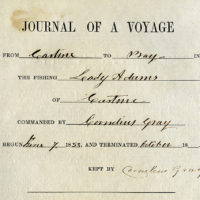 JOURNAL OF A VOYAGE
FROM Castine TO Bray IN
THE FISHING Lady Adams
OF Castine
COMMANDED BY Cornelius Gray
BEGUN June 7 1853. AND TERMINATED October 18
KEPT BY Cornelius Gray